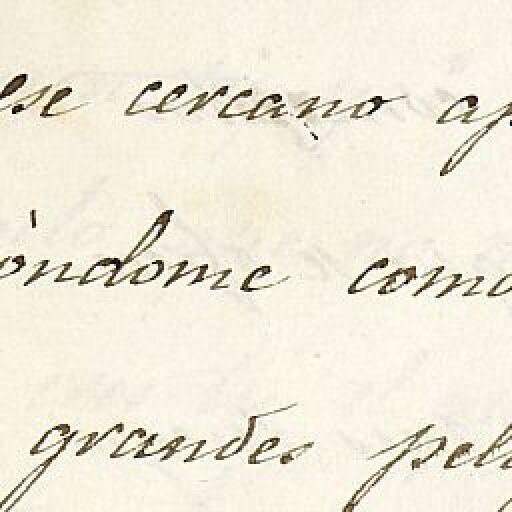 ese cercano ap
óndome como
grandes pel